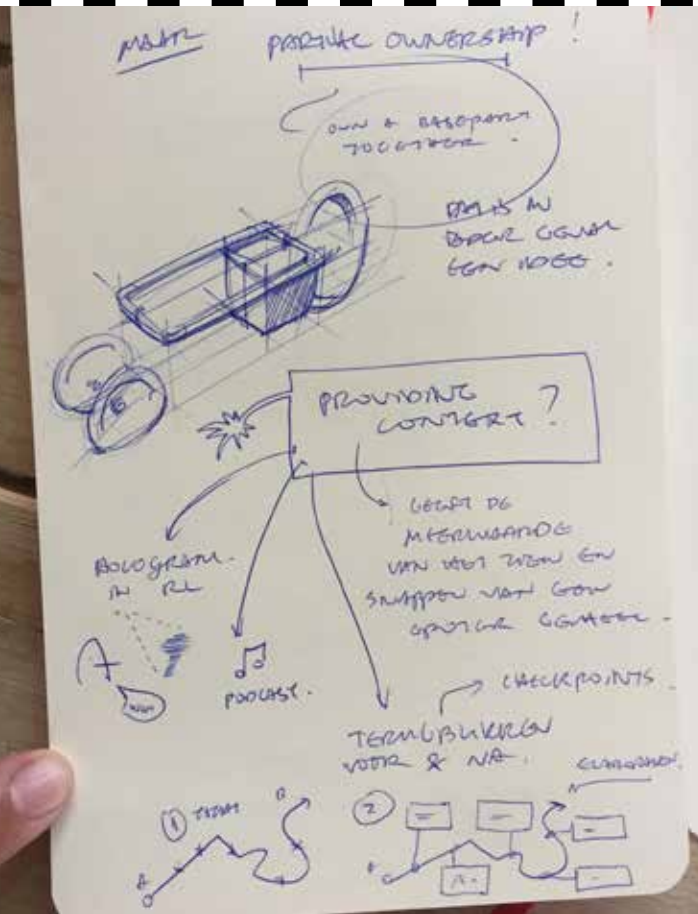 MAAR PARTIAL OWNERSHIP!
OWN A BASEPART
TOGETHER.
DAT IS IN
IEDER GEVAL
EEN IDEE.
PROVIDING
CONTEXT?
GEEFT DE
MEERWAARDE
VAN HET ZIEN EN
SNAPPEN VAN EEN
GROTER GEHEEL.
HOLOGRAM
IN RL
PODCAST.
CHECKPOINTS
TERUGBLIKKEN
VOOR & NA.
1
B
A
2
A